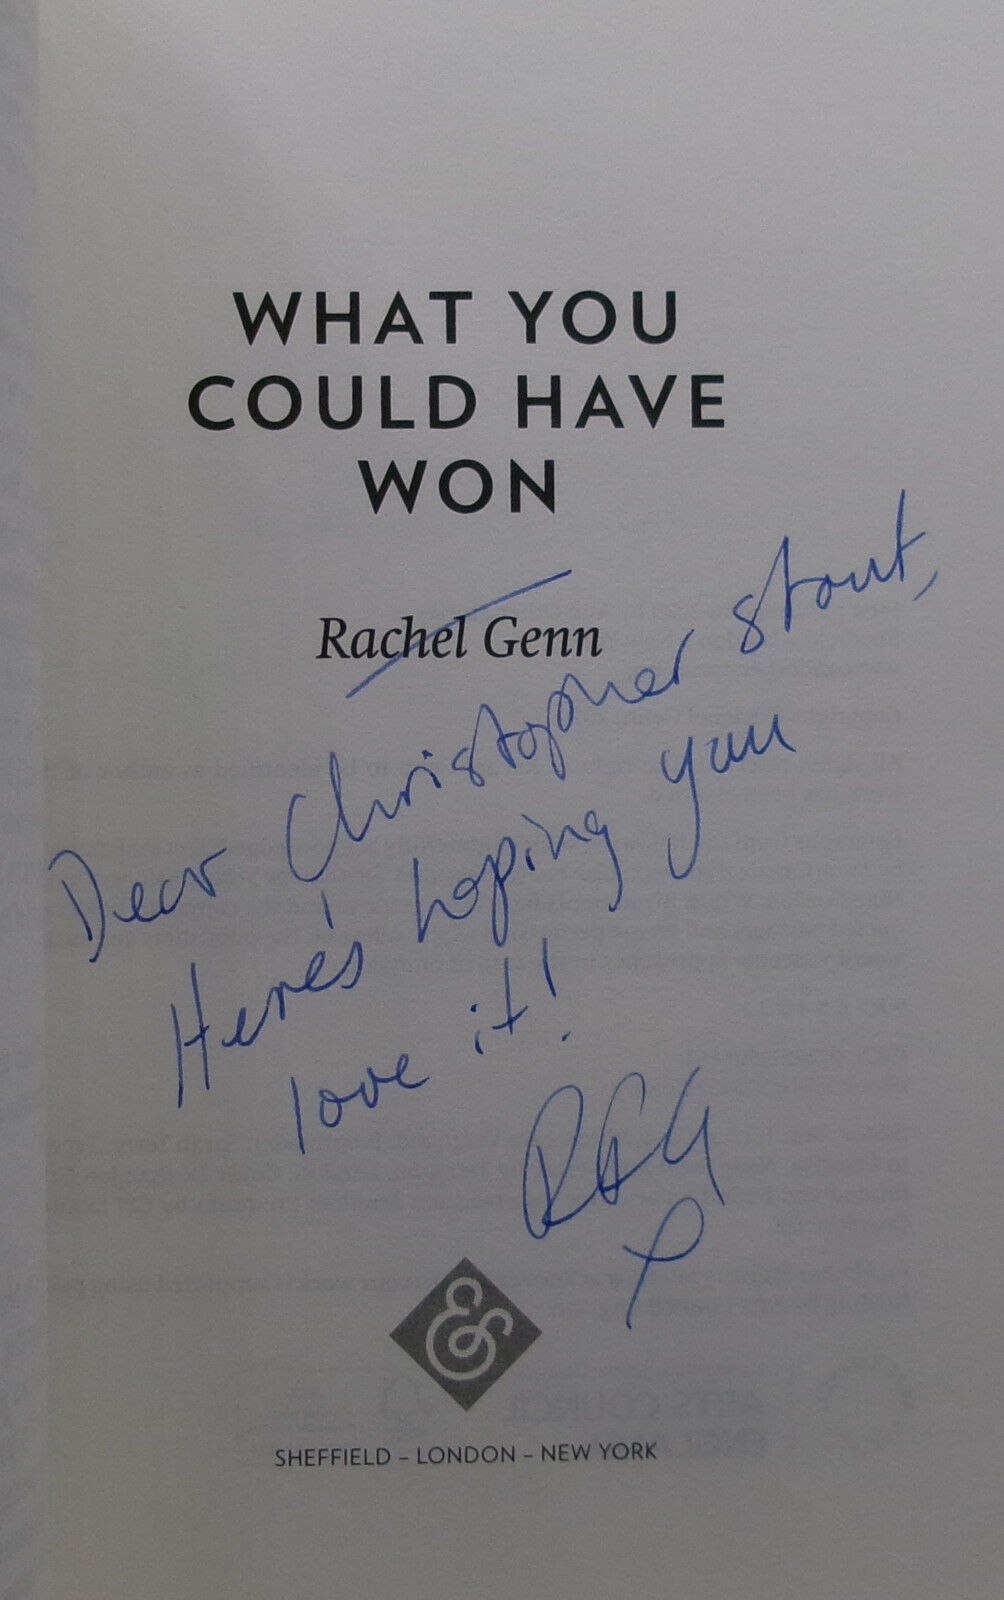 WHAT YOU
COULD HAVE
WON
Rachel Genn
Dear Christopher Stout,
Here's hoping you
love it!
RG
x
&
SHEFFIELD – LONDON – NEW YORK